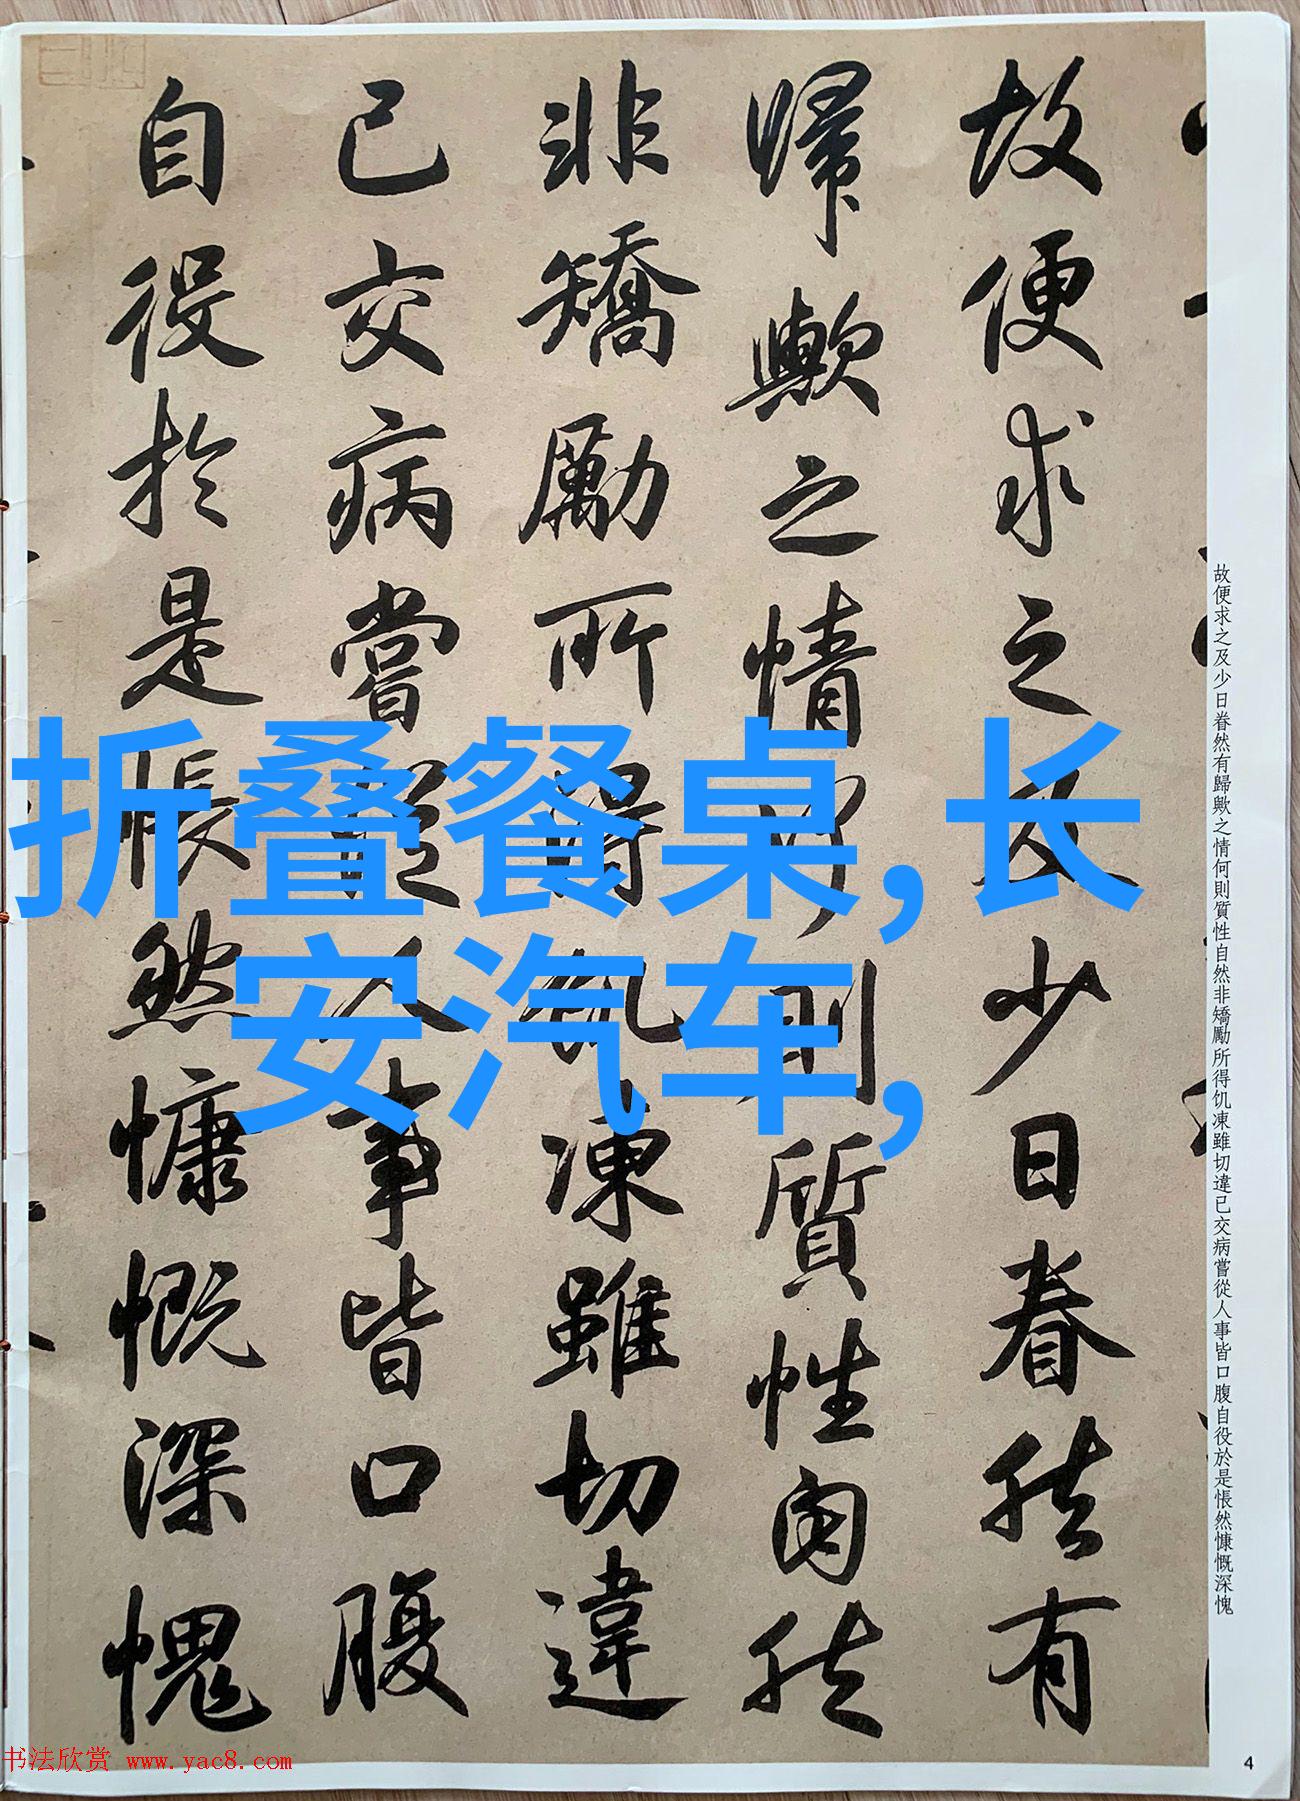 故便求之及少日眷然有
歸歟之情何則質性自然
非矯勵所得飢凍雖切違
已交病嘗從人事皆口腹
自役於是悵然慷慨深愧
故便求之及少日眷然有歸歟之情何則質性自然非矯勵所得饥凍雖切違已交病嘗從人事皆口腹自役於是悵然慷慨深愧
折叠餐桌,长
安汽车,
书法欣赏 www.yac8.com
4